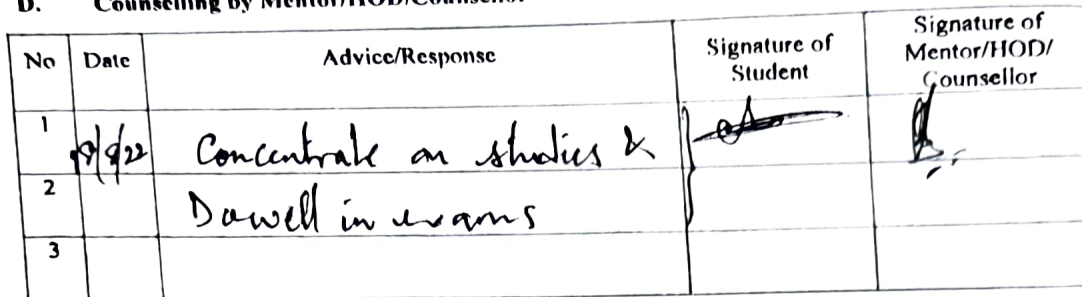 D. Counselling by Mentor/HOD/Counsellor
No Date Advice/Response Signature of Student Signature of Mentor/HOD/ Counsellor
1 Concentrate on studies &
2 Dowell in exams
3